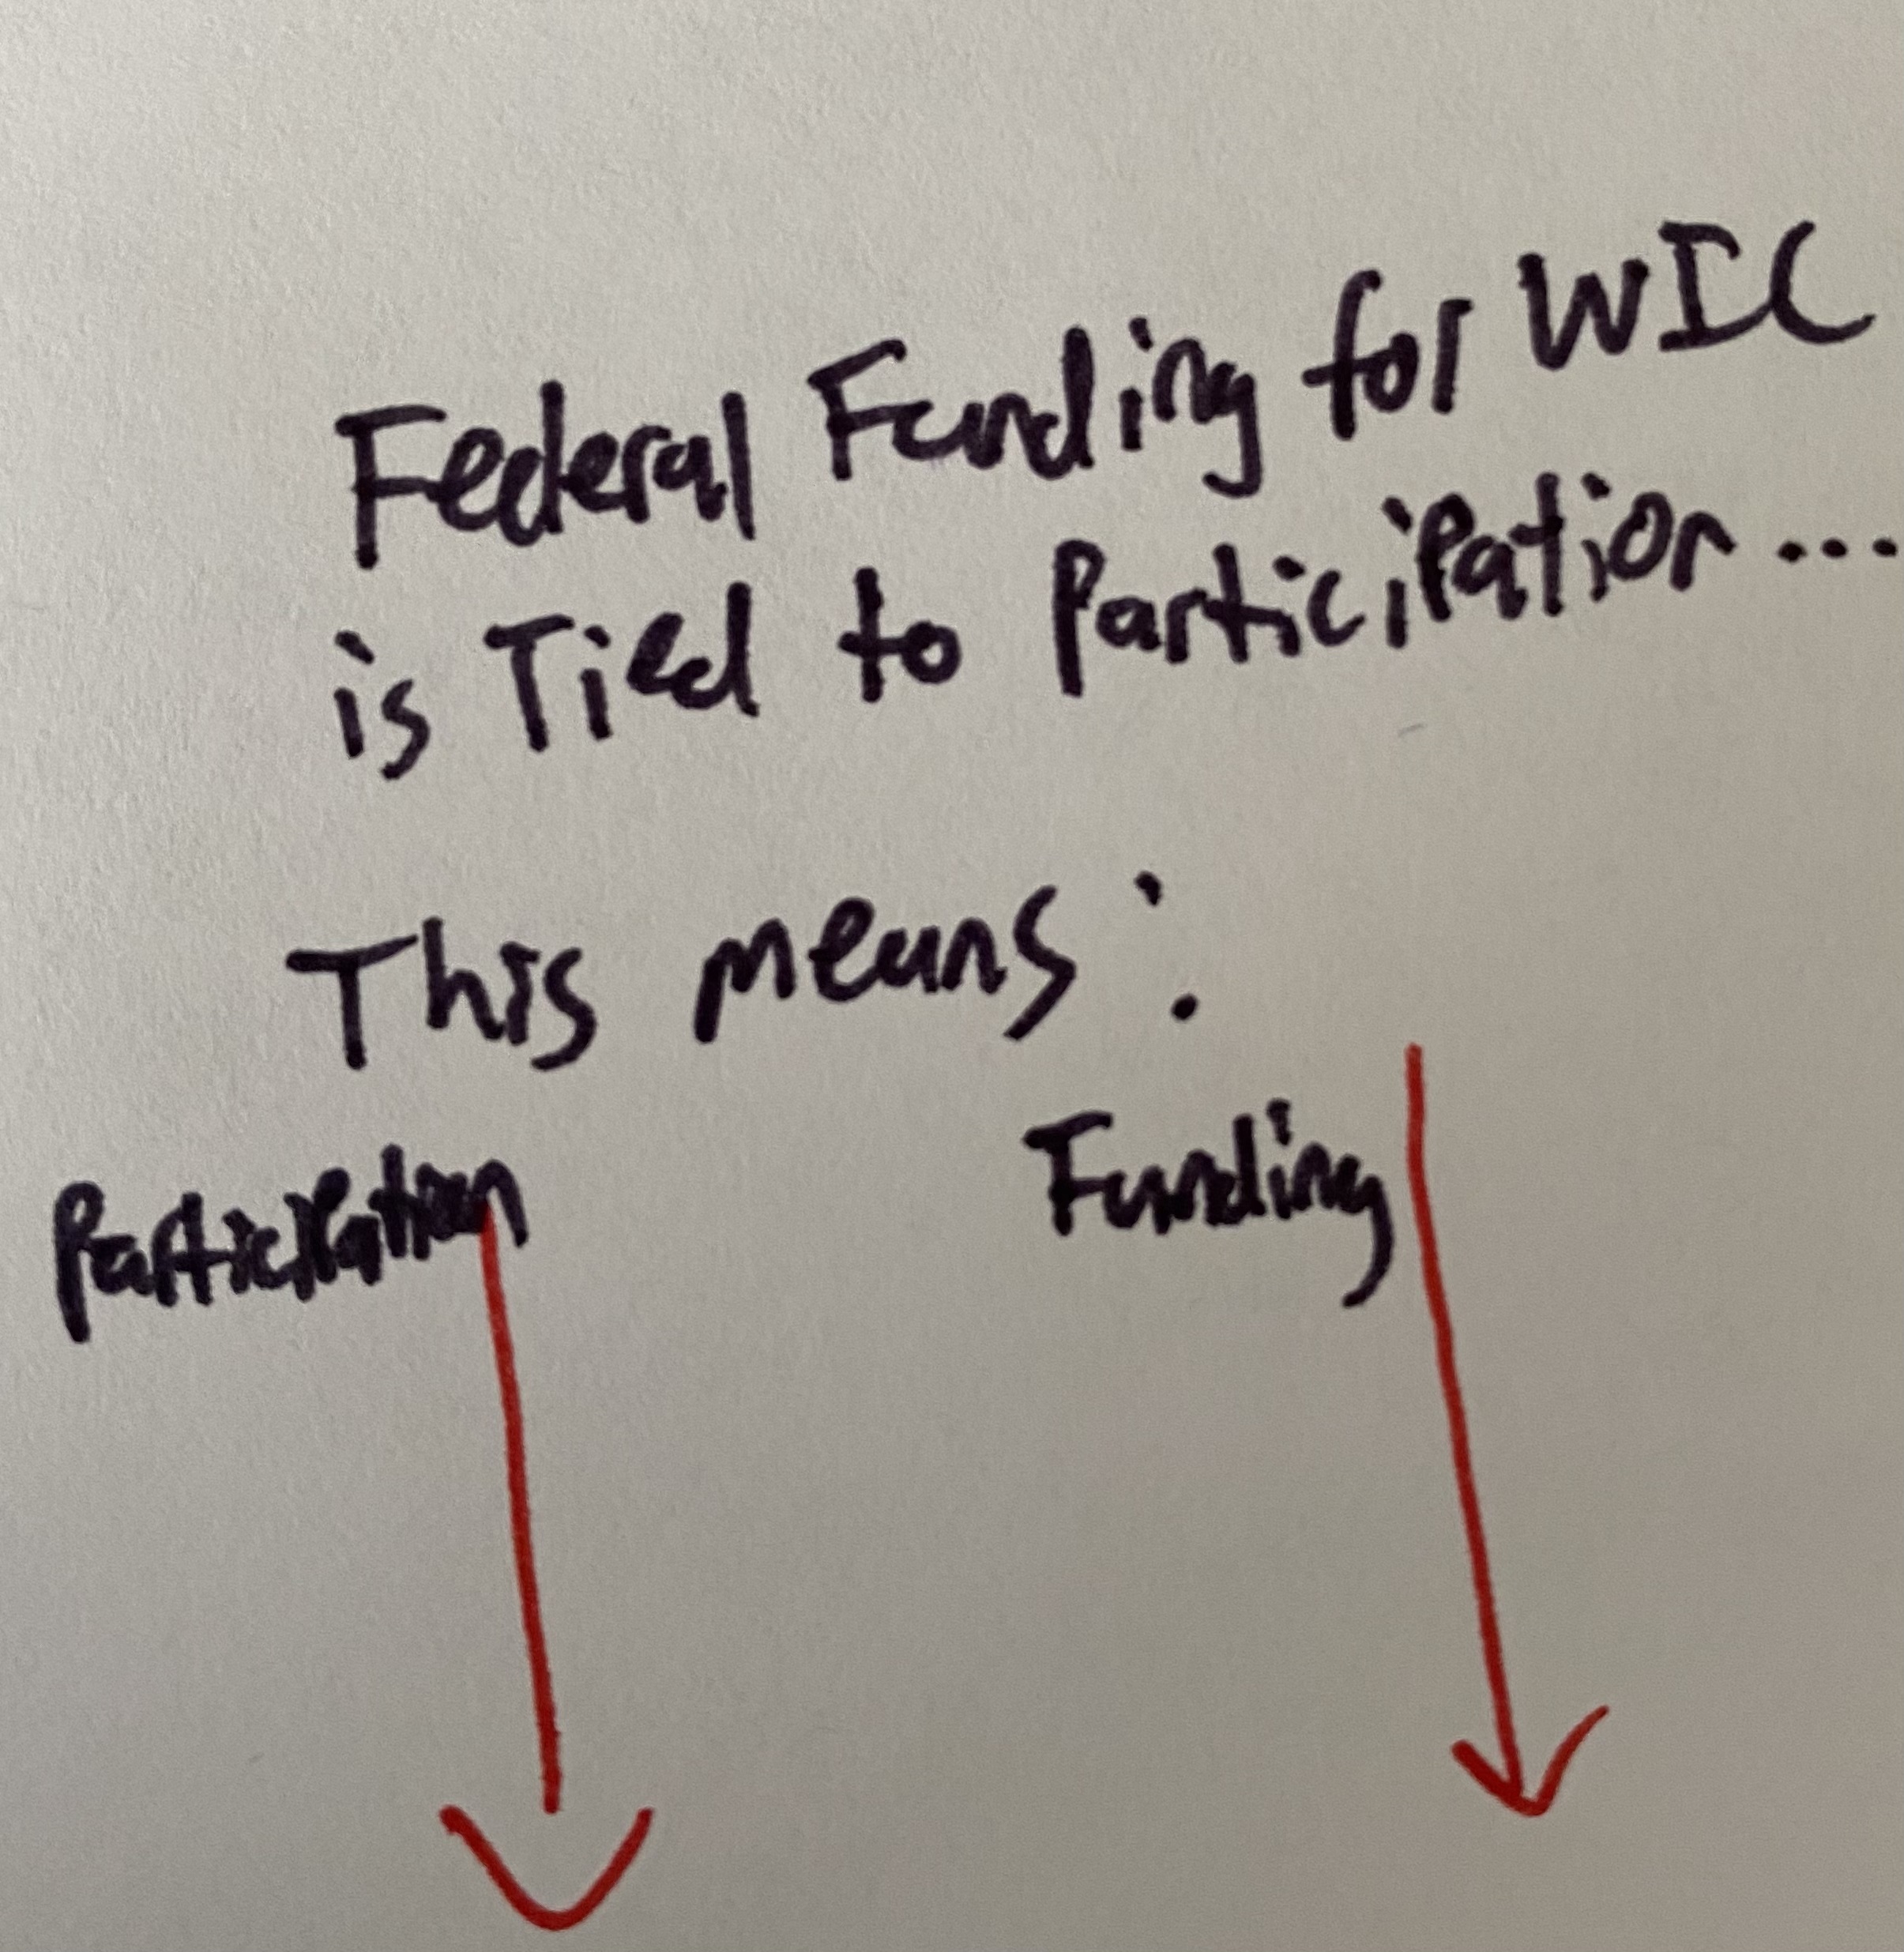 Federal Funding for WIC
is Tied to Participation...
This means:
Participation
Funding